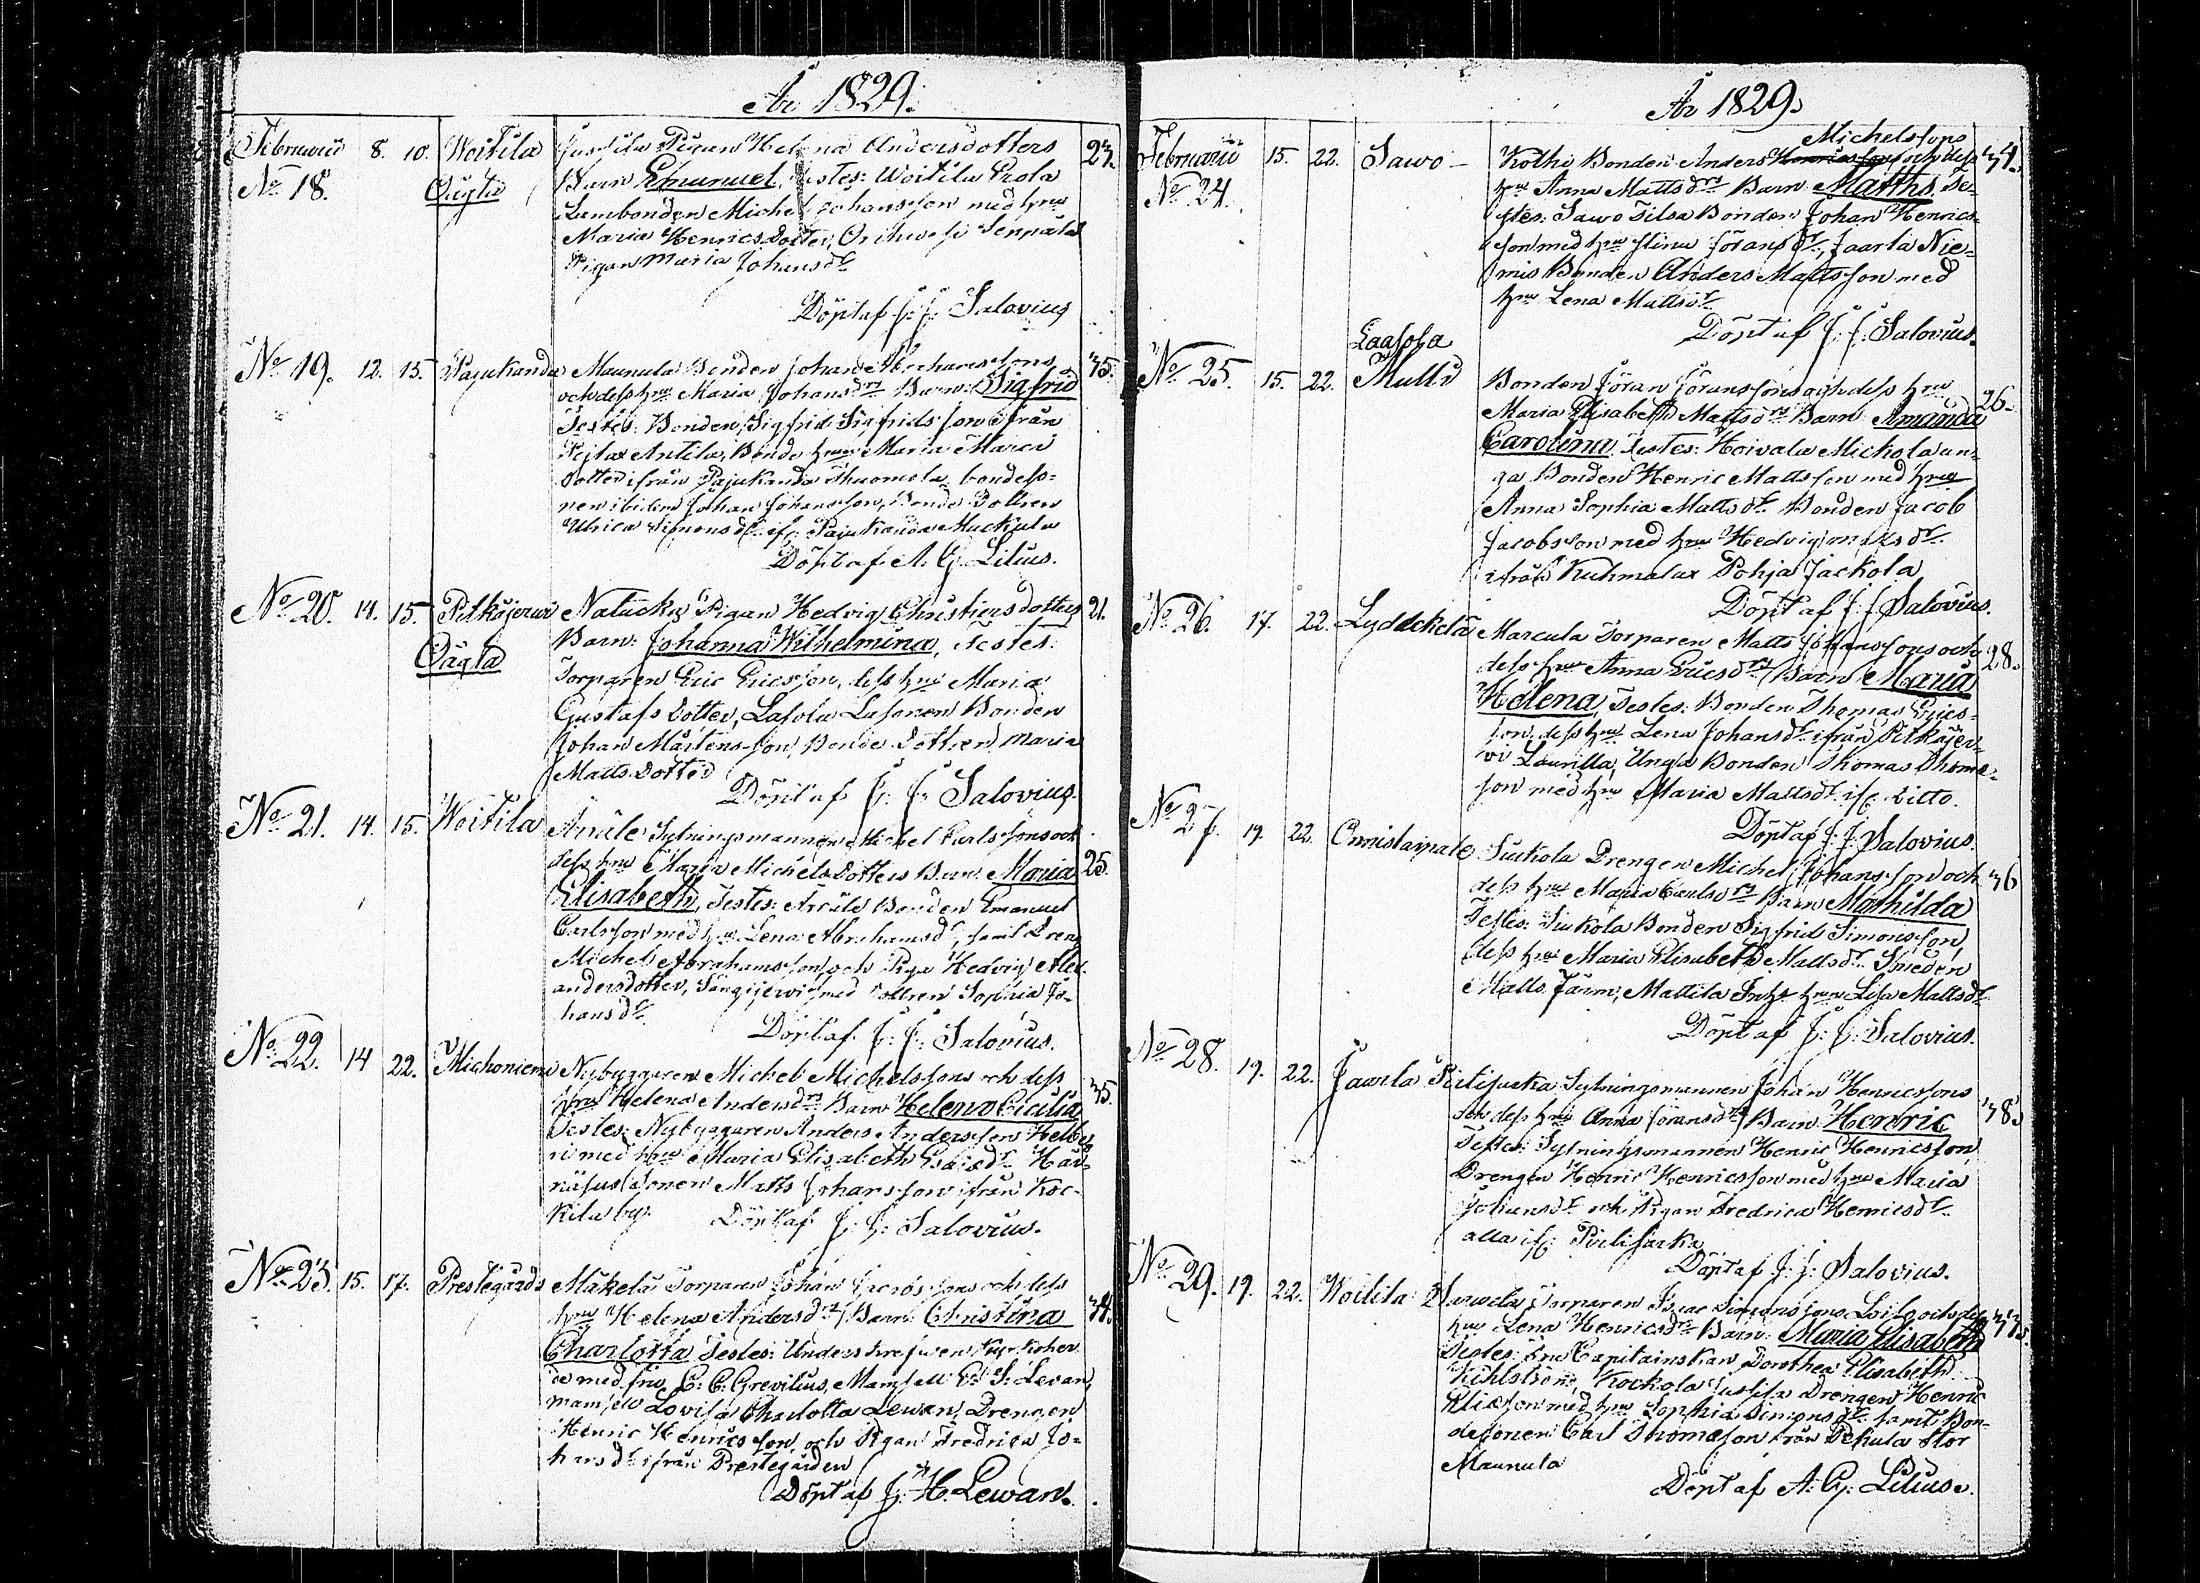 År 1829.
Februarii 8. 10. Woitila Jussila Pigan Helena Andersdotters 27.
No 18. Oägta Barn Emanuel, Testes: Woitila Prola
Lumbonden Michel Johansson med hru
Maria Henricsdotter,
Pigan Maria Johansdr
Döpt af J: J: Salovius
No 19. 12. 15. Pajukanda Maunula Bonden Johan Abrahamssons 35.
och dess hru Maria Johansdrs Barn: Sigfrid
Testes: Bonden Sigfrid Sigfridsson ifrån
Antila, Bonde hrun Maria
dotter ifrån Pajukanda bondesso=
nen ibidem Johan Johansson, Bonde Dottren
Ulrica Simonsdr ifr: Pajukanda Mackula
Döpt af A. G. Lilius.
No 20. 14. 15. Pitkäjerwi Natucka Pigan Hedvig Christiersdotters 21.
Barn: Johanna Wilhelmina, Testes:
Oägta
Torparen Eric Ericsson, dess hru Maria
Gustafs dotter, Lasola Lasonen Bonden
Johan Mårtensson, Bonde dottren Maria
Matts dotter
Döpt af J: J: Salovius.
No 21. 14. 15. Woitila Anäle Sytningsmannen Michel Karlssons och
dess hru Maria Michelsdotters Barn Maria 25.
Elisabeth, Testes: Anäle Bonden Emanuel
Carlsson med hru Lena Abrahamsdr, samt Dreng
Michel Abrahamsson, och Piga Hedvig Alex-
andersdotter, Sängijerwi, med Dottren Sophia Jo-
hansdr.
Döpt af J: J: Salovius.
No 22. 14 22. Michoniemi Nybyggaren Michel Michelssons och dess
hru Helena Andersdrs Barn Helena Cicilia 35.
Testes: Nybyggaren Anders Andersson
med hru Maria Elisabeth Esaiædr
Matts Johansson ifrån Koc-
kila by.
Döpt af J: J: Salovius.
No 23. 15. 17. Prestegårds Mäkelä Torparen Johan Jacobssons och dess
hru Helena Andersdrs Barn: Christina 34.
Charlotta Testes: Underskrefwen Kyrkoher
de med fru C: C: Grevilius, Mamsell E: S: Levan,
mamsell Lovisa Charlotta Lewan, Drengen
Henric Henricsson och Pigan Fredrica Jo=
hansdr ifrån Prestegården
Döpt af J. H. Lewan.
År 1829.
Michelssons
Februarii 15. 22. Sawo - Kothi Bonden Anders Henricssons och dess 31.
No 24. hru Anna Mattsdrs Barn: Matths. Te-
stes: Sawo Tilsa Bonden Johan Henrics-
son med hru Stina Göransdr, Jaarla Nie-
mis Bonden Anders Mattsson med
hru Lena Mattsdr
Döpt af J: J: Salovius.
Laasola
No 25. 15. 22. Mulli Bonden Göran Göranssons och dess hru
Maria Elisabeth Mattsdrs Barn Amanda 26.
Carolina. Testes: Hoivala Mickola un-
ga Bonden Henric Mattsson med hru
Anna Sophia Mattsdr. Bonden Jacob
Jacobsson med hru Hedvig
ifrån Kuhmalax Pohja Jackola
Döpt af J: J: Salovius.
No 26. 17. 22. Lyddekelä Marcula Torparen Matts Johanssons och
dess hru Anna Ericsdrs Barn Maria 28.
Helena, Testes: Bonden Thomas Erics-
son, dess hru Lena Johansdr ifrån Pitkäjer-
vi Laurilla, Unga Bonden Thomas Thoma-
son med hru Maria Mattsdr ifr: Ditto.
Döpt af J: J: Salovius.
No 27. 19. 22. Onnislaipale Suikola Drengen Michel Johanssons och
dess hru Maria Carlsdrs Barn Mathilda 36
Testes: Suikola Bonden Sigfrid Simonsson,
dess hru Maria Elisabeth Mattsdr Smeden
Matts Järm, Mattila Inhs: hrun Lisa Mattsdr
Döpt af J: J: Salovius.
No 28. 19. 22. Jaarla Pirtisarka Sytningsmannen Johan Henricssons
och dess hru Anna Göransdrs Barn: Henric 38.
Testes: Sytningsmannen Henric Henricsson,
Drengen Henric Henricsson med hru Maria
Johansdr och Pigan Fredrica Henricsdr
alla ifr: Pirtisarka
Döpt af J: J: Salovius.
No 29. 19. 22. Woitila Torparen Isaac Simonssons Loil och dess 33.
hru Lena Henricsdrs Barn: Maria Elisabeth
Testes: Fru Capitainskan Dorothea Elisabeth
Kihlström, Kockola Jussila Drengen Henric
Eliasson med hru Sophia Simonsdr samt Bon-
desonen Carl Thomasson från Pekula Stor
Maunula
Döpt af A. G. Lilius.